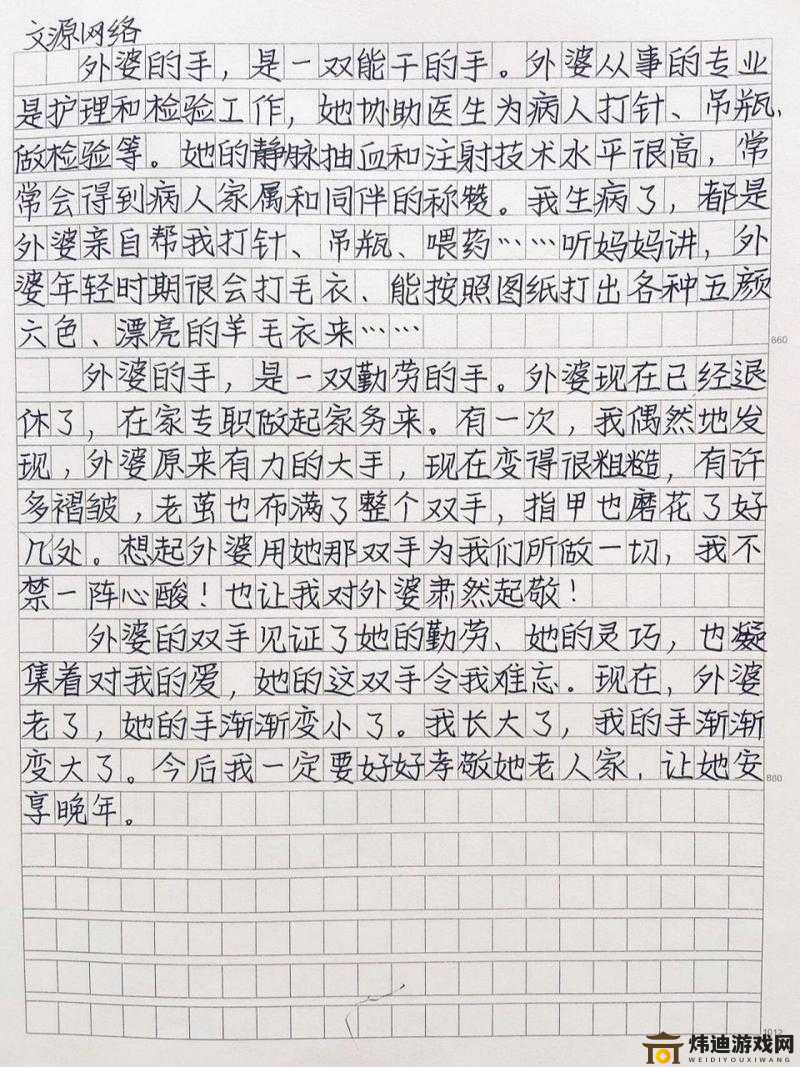 文源网络
外婆的手，是一双能干的手。外婆从事的专业
是护理和检验工作，她协助医生为病人打针、吊瓶，
做检验等。她的静脉抽血和注射技术水平很高，常
常会得到病人家属和同伴的称赞。我生病了，都是
外婆亲自帮我打针、吊瓶、喂药……听妈妈讲，外
婆年轻时期很会打毛衣、能按照图纸打出各种五颜
六色、漂亮的羊毛衣来……
660
外婆的手，是一双勤劳的手。外婆现在已经退
休了，在家专职做起家务来。有一次，我偶然地发
现，外婆原来有力的大手，现在变得很粗糙，有许
多褶皱，老茧也布满了整个双手，指甲也磨花了好
几处。想起外婆用她那双手为我们所做一切，我不
禁一阵心酸！也让我对外婆肃然起敬！
外婆的双手见证了她的勤劳、她的灵巧，也凝
集着对我的爱，她的这双手令我难忘。现在，外婆
老了，她的手渐渐变小了。我长大了，我的手渐渐
变大了。今后我一定要好好孝敬她老人家，让她安
880
享晚年。
1012
炜迪游戏网
WEIDIYOUXIWANG